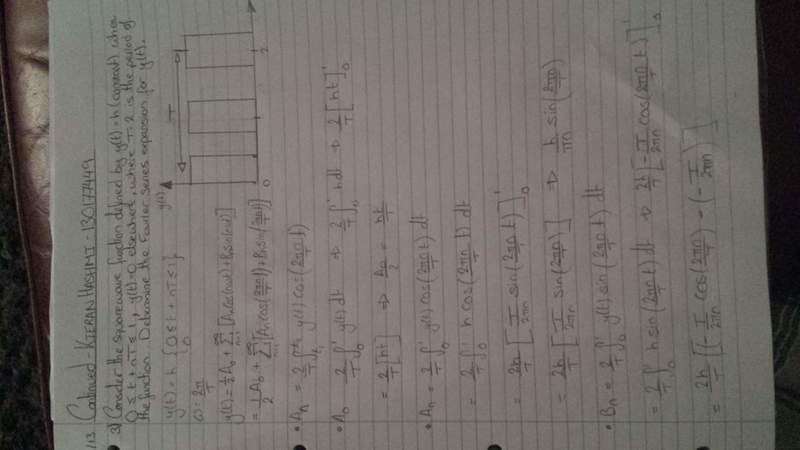 113 Continued - KIERAN HASHMI - 130177449
3) Consider the squarewave function defined by y(t) = h (constant) when
0 ≤ t + nT ≤ 1, y(t) = 0 elsewhere, where T = 2 is the period of
the function. Determine the Fourier series expansion for y(t).
y(t) = h {0 ≤ t + nT ≤ 1}
0
y(t)
T
0
2
ω = 2π/T
y(t) = ½A₀ + Σ [Aₙcos(nωt) + Bₙsin(nωt)]
= ½A₀ + Σ [Aₙcos(2πn/T t) + Bₙsin(2πn/T t)]
• Aₙ = 2/T ∫ y(t) cos(2πn/T t)
• A₀ 2/T ∫₀¹ y(t) dt ⇒ 2/T ∫₀¹ h dt ⇒ 2/T [ht]₀¹
= 2/T [ht] ⇒ A₀/2 = ht/T
• Aₙ = 2/T ∫₀¹ y(t) cos(2πn/T t) dt
= 2/T ∫₀¹ h cos(2πn/T t) dt
= 2h/T [T/2πn sin(2πn/T t)]₀¹
= 2h/T [T/2πn sin(2πn/T)] ⇒ h/πn sin(2πn/T)
• Bₙ = 2/T ∫₀¹ y(t) sin(2πn/T t) dt
= 2/T ∫₀¹ h sin(2πn/T t) dt ⇒ 2h/T [-T/2πn cos(2πn/T t)]₀¹
= 2h/T [(-T/2πn cos(2πn/T)) - (-T/2πn)]